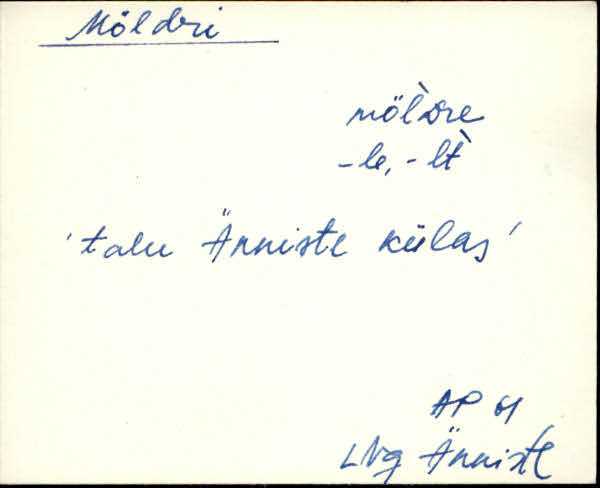 Möldri
möl̀dre
-le, -lt̀
'talu Änniste külas'
AP 61
LNg Änniste